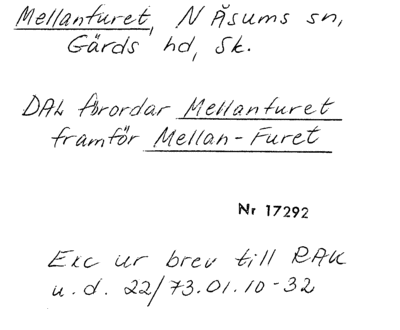 Mellanfuret, N Åsums sn,
Gärds hd, Sk.
DAL förordar Mellanfuret
framför Mellan-Furet
Nr 17292
Exc ur brev till RAK
u.d. 22/73.01.10-32